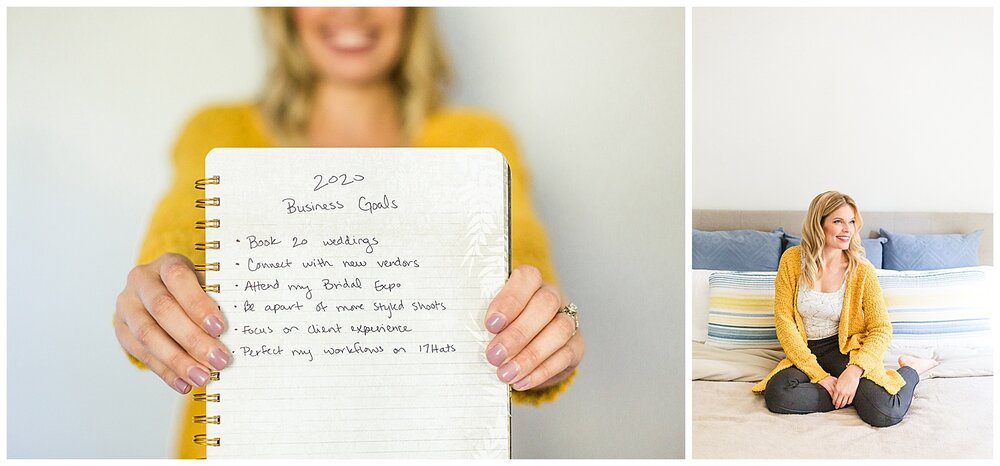 2020
Business Goals
• Book 20 weddings
• Connect with new vendors
• Attend my Bridal Expo
• Be apart of more styled shoots
• Focus on client experience
• Perfect my workflows on 17Hats